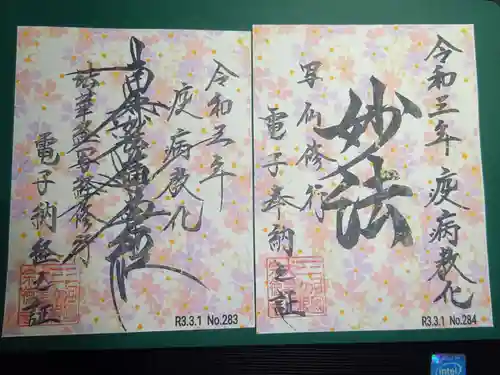 令和三年
疫病教化
南無妙法蓮華経
法華盆写経修行
電子納経之証
R3.3.1 No.283
令和三年 疫病教化
妙法
写仏修行
電子奉納之証
R3.3.1 No.284
intel